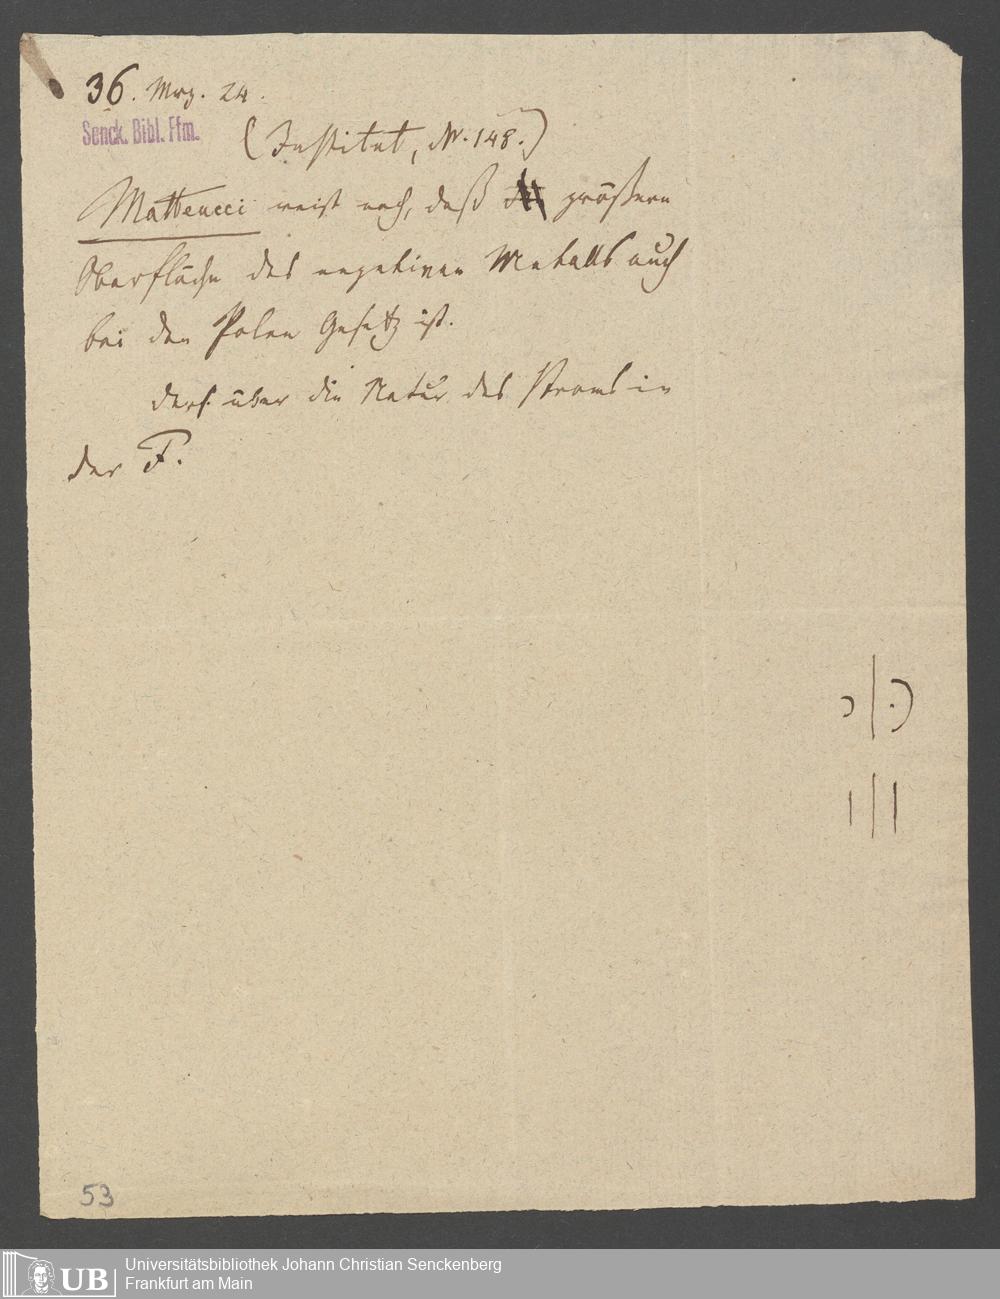 36. Mrz. 24.
Senck. Bibl. Ffm.
(Institut, N. 148.)
Matteucci weist nach, daß größern
Oberfläche des negativen Metalls auch
bei den Polen Gesetz ist.
ders. über die Natur des Stroms in
der F.
53
UB Universitätsbibliothek Johann Christian Senckenberg
Frankfurt am Main